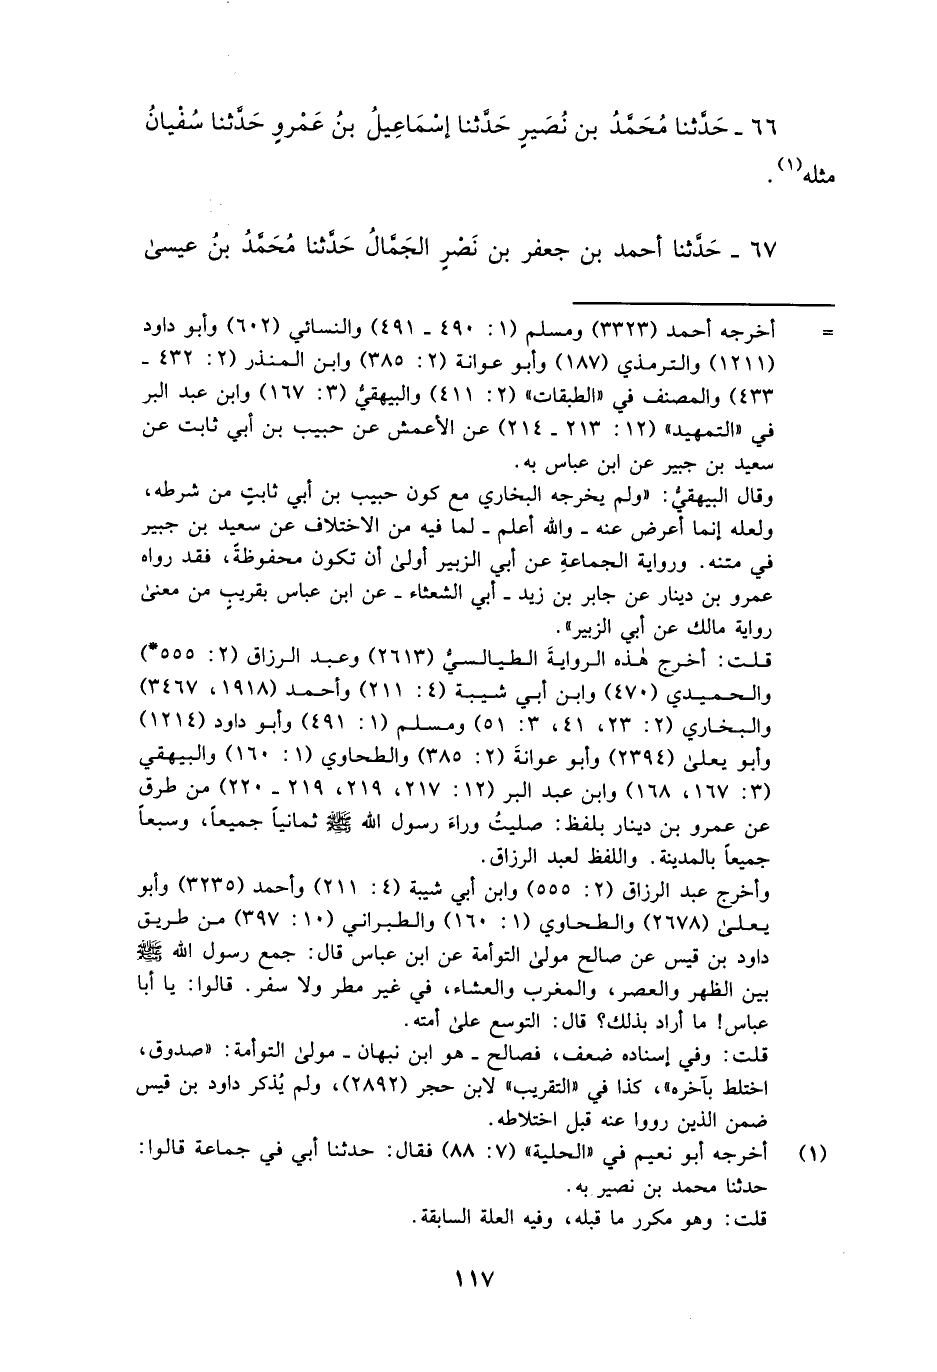 ٦٦ ـ حَدَّثنا مُحَمَّدُ بن نُصَيرٍ حَدَّثنا إسْمَاعِيلُ بنُ عَمْروٍ حَدَّثنا سُفْيانُ
مثله(١).
٦٧ ـ حَدَّثنا أحمد بن جعفر بن نَصْرٍ الجَمَّالُ حَدَّثنا مُحَمَّدُ بنُ عيسىٰ
= أخرجه أحمد (٣٣٢٣) ومسلم (١: ٤٩٠ ـ ٤٩١) والنسائي (٦٠٢) وأبو داود
(١٢١١) والترمذي (١٨٧) وأبو عوانة (٢: ٣٨٥) وابن المنذر (٢: ٤٣٢ ـ
٤٣٣) والمصنف في «الطبقات» (٢: ٤١١) والبيهقيُّ (٣: ١٦٧) وابن عبد البر
في «التمهيد» (١٢: ٢١٣ ـ ٢١٤) عن الأعمش عن حبيب بن أبي ثابت عن
سعيد بن جبير عن ابن عباس به.
وقال البيهقيُّ: «ولم يخرجه البخاري مع كون حبيب بن أبي ثابتٍ من شرطه،
ولعله إنما أعرض عنه ـ والله أعلم ـ لما فيه من الاختلاف عن سعيد بن جبير
في متنه. ورواية الجماعةِ عن أبي الزبير أولىٰ أن تكون محفوظةً، فقد رواه
عمرو بن دينار عن جابر بن زيد ـ أبي الشعثاء ـ عن ابن عباس بقريبٍ من معنىٰ
رواية مالك عن أبي الزبير».
قلت: أخرج هٰذه الروايةَ الطيالسيُّ (٢٦١٣) وعبد الرزاق (٢: ٥٥٥*)
والحميدي (٤٧٠) وابن أبي شيبة (٤: ٢١١) وأحمد (١٩١٨، ٣٤٦٧)
والبخاري (٢: ٢٣، ٤١، ٣: ٥١) ومسلم (١: ٤٩١) وأبو داود (١٢١٤)
وأبو يعلىٰ (٢٣٩٤) وأبو عوانةَ (٢: ٣٨٥) والطحاوي (١: ١٦٠) والبيهقي
(٣: ١٦٧، ١٦٨) وابن عبد البر (١٢: ٢١٧، ٢١٩، ٢١٩ ـ ٢٢٠) من طرق
عن عمرو بن دينار بلفظ: صليتُ وراءَ رسول الله ﷺ ثمانياً جميعاً، وسبعاً
جميعاً بالمدينة. واللفظ لعبد الرزاق.
وأخرج عبد الرزاق (٢: ٥٥٥) وابن أبي شيبة (٤: ٢١١) وأحمد (٣٢٣٥) وأبو
يعلىٰ (٢٦٧٨) والطحاوي (١: ١٦٠) والطبراني (١٠: ٣٩٧) من طريق
داود بن قيس عن صالح مولىٰ التوأمة عن ابن عباس قال: جمع رسول الله ﷺ
بين الظهر والعصر، والمغرب والعشاء، في غير مطر ولا سفر. قالوا: يا أبا
عباس! ما أراد بذلك؟ قال: التوسع علىٰ أمته.
قلت: وفي إسناده ضعف، فصالح ـ هو ابن نبهان ـ مولىٰ التوأمة: «صدوق،
اختلط بآخره»، كذا في «التقريب» لابن حجر (٢٨٩٢)، ولم يُذكر داود بن قيس
ضمن الذين رووا عنه قبل اختلاطه.
(١) أخرجه أبو نعيم في «الحلية» (٧: ٨٨) فقال: حدثنا أبي في جماعة قالوا:
حدثنا محمد بن نصير به.
قلت: وهو مكرر ما قبله، وفيه العلة السابقة.
١١٧